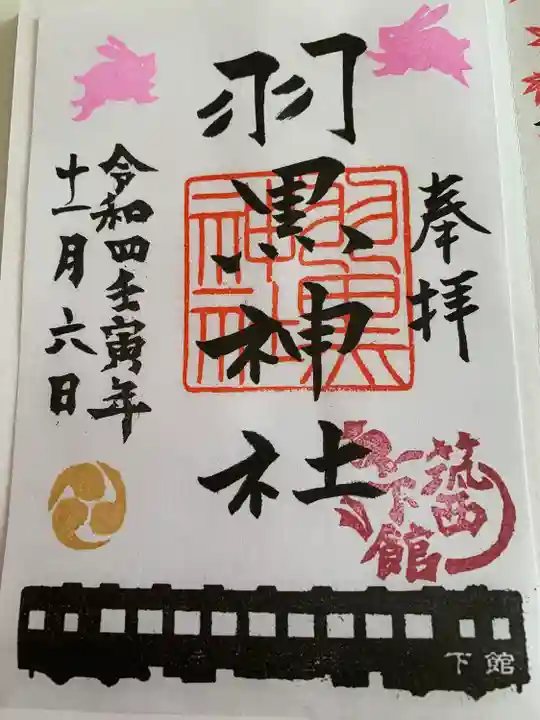 奉拝
羽黒神社
羽黒
神社
令和四壬寅年
十一月六日
筑西
下館
下館